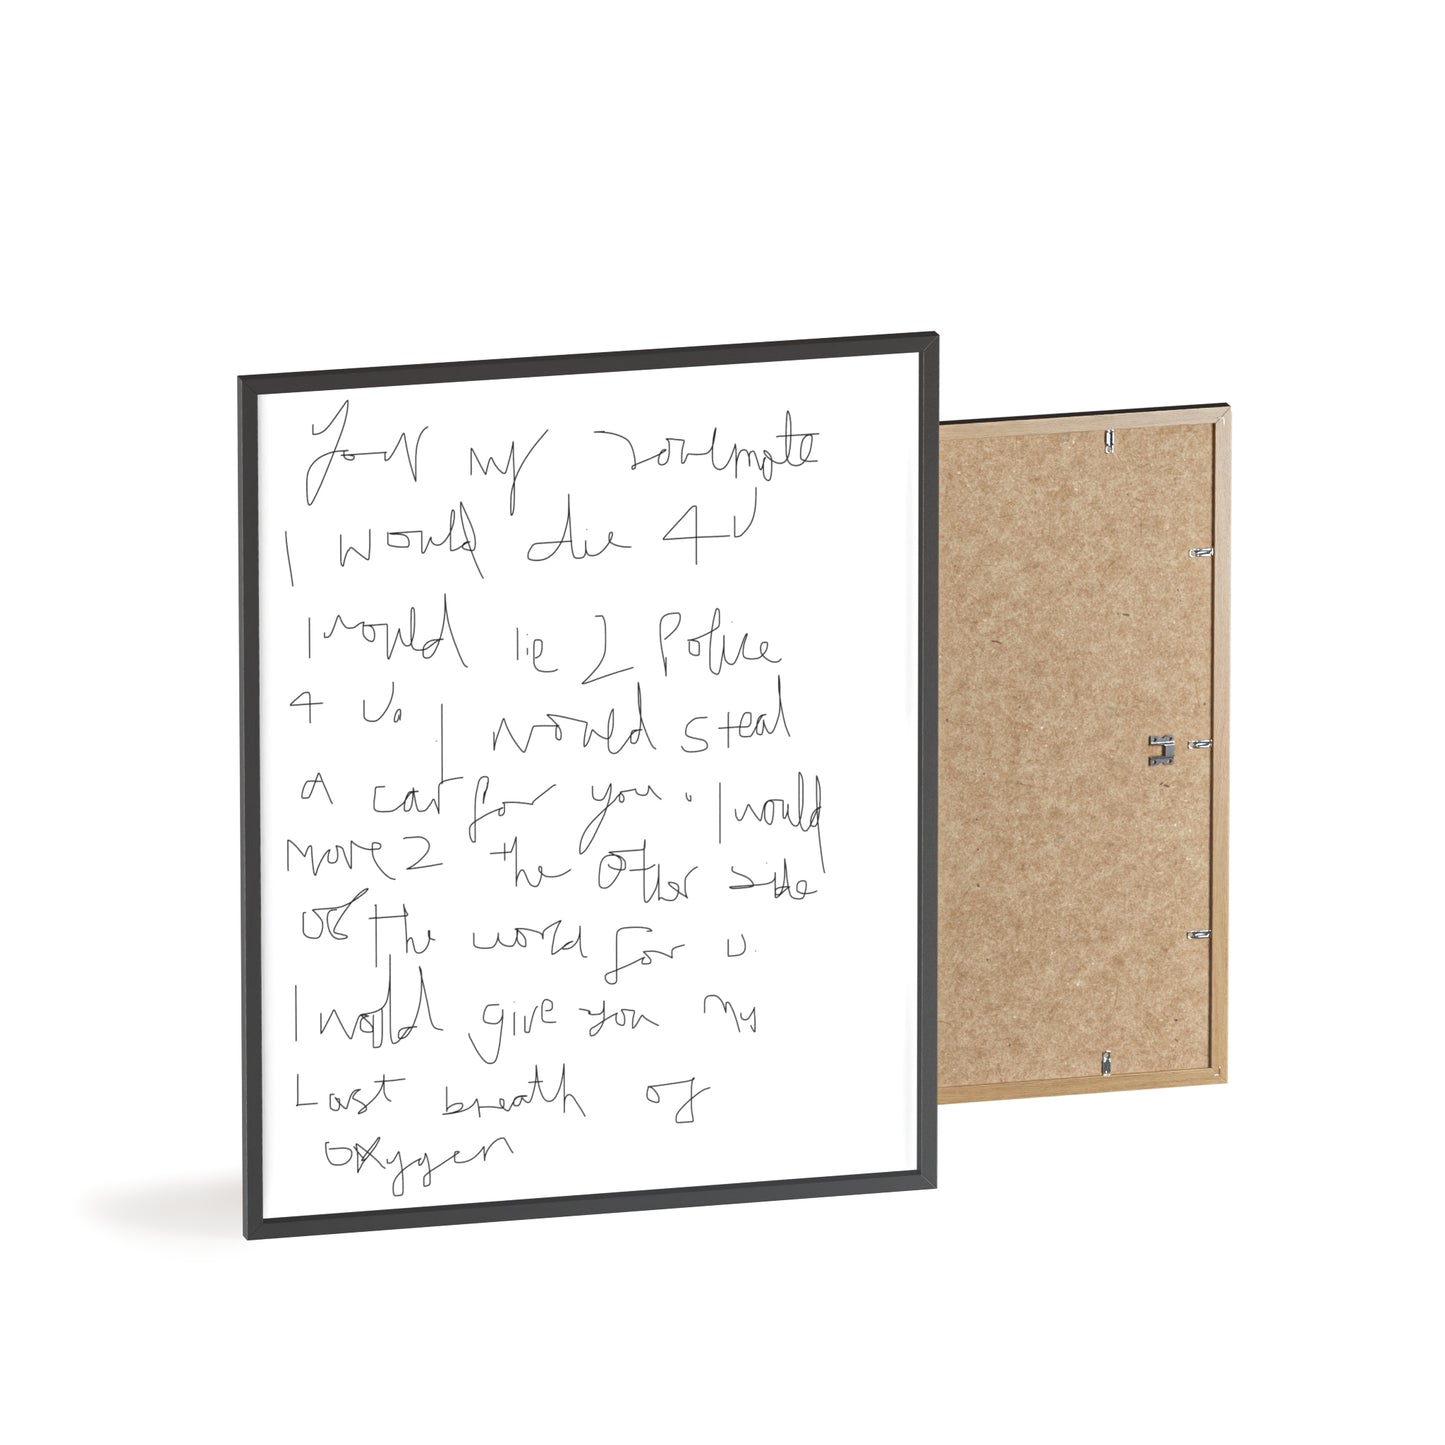 Your my soulmate
I would die 4 U
I would lie 2 Police
4 U. I would steal
a car for you. I would
move 2 the other side
of the world for U.
I would give you my
Last breath of
oxygen